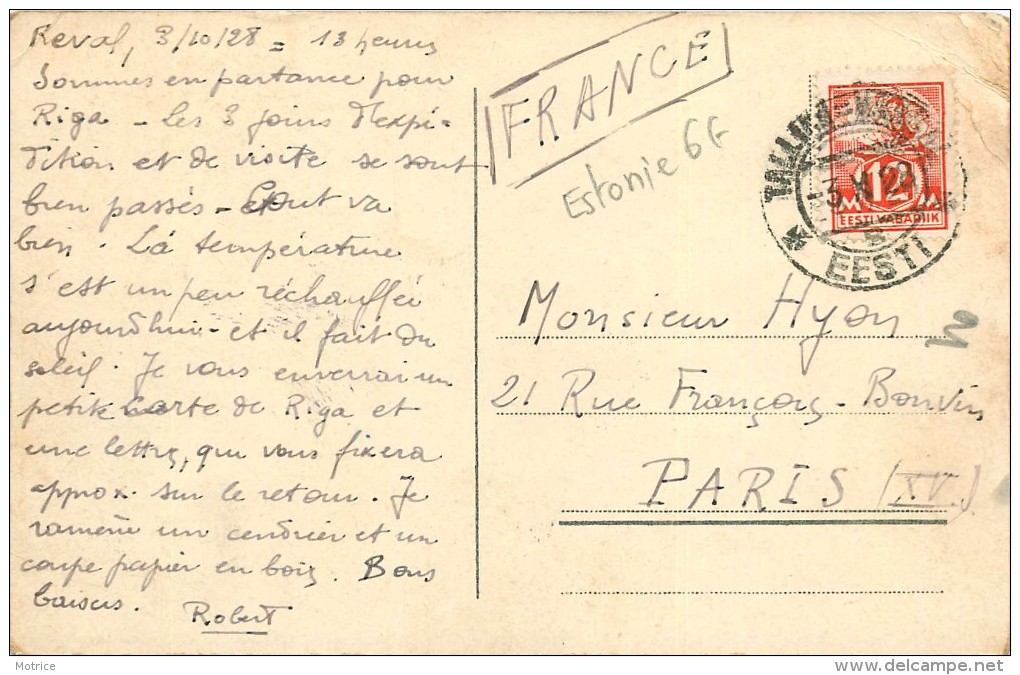 Reval, 3/10/28 = 13 heures
Sommes en partance pour
Riga - Les 3 jours d'expé-
dition et de visite se sont
bien passés - tout va
bien. La température
s'est un peu réchauffée
aujourd'hui - et il fait du
soleil. Je vous enverrai un
petite carte de Riga et
une lettre, qui vous fixera
approx. sur le retour. Je
ramène un cendrier et un
coupe papier en bois. Bons
baisers.
Robert
FRANCE
Estonie 6F
EESTI
12
EESTI VABARIIK
Monsieur Hyon
21 Rue François-Bonvin
PARIS (XV.)
Motrice
delcampe.net